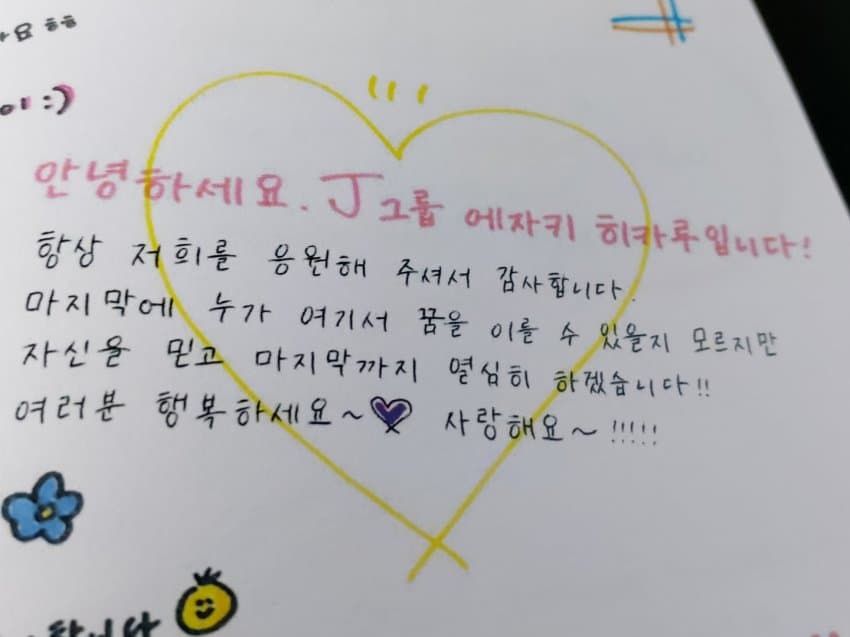 요 ㅎㅎ
:)
안녕하세요. J그룹 에자키 히카루입니다!
항상 저희를 응원해 주셔서 감사합니다.
마지막에 누가 여기서 꿈을 이룰 수 있을지 모르지만
자신을 믿고 마지막까지 열심히 하겠습니다!!
여러분 행복하세요~ 사랑해요~ !!!!!